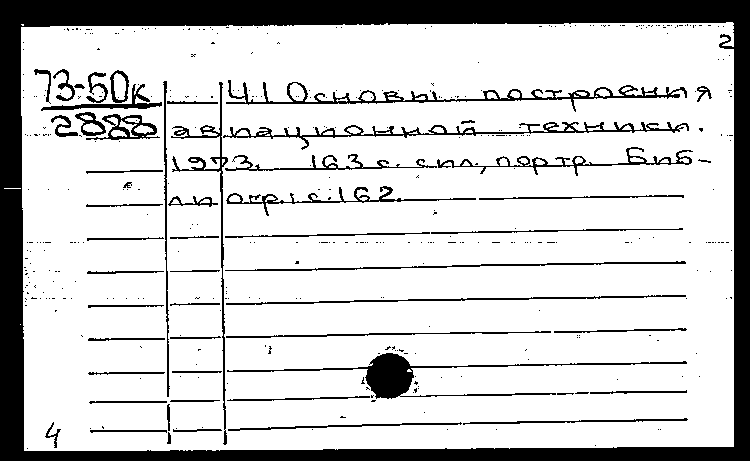 2
73-50к Ч.1 Основы построения
2888 авиационной техники.
1973. 163 с. с ил., портр. Биб-
лиогр.: с. 162.
4